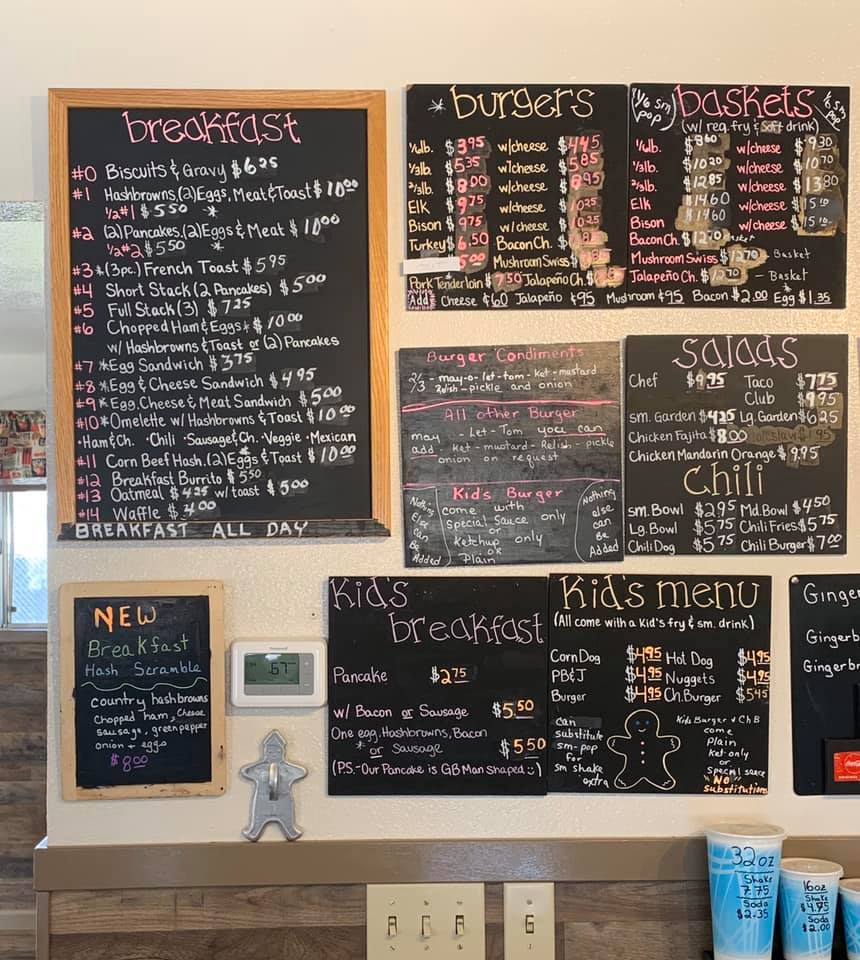 breakfast
#0 Biscuits & Gravy $6.25
#1 Hashbrowns,(2)Eggs, Meat & Toast $10.00
1/2 #1 $5.50 *
#2 (2)Pancakes,(2)Eggs & Meat $10.00
1/2 #2 $5.50 *
#3 *(3pc.) French Toast $5.95
#4 Short Stack (2 Pancakes) $5.00
#5 Full Stack (3) $7.25
#6 Chopped Ham & Eggs * $10.00
w/ Hashbrowns & Toast or (2) Pancakes
#7 *Egg Sandwich $3.75
#8 *Egg & Cheese Sandwich $4.95
#9 *Egg, Cheese & Meat Sandwich $5.00
#10 *Omelette w/ Hashbrowns & Toast $10.00
·Ham & Ch. ·Chili ·Sausage & Ch. ·Veggie ·Mexican
#11 Corn Beef Hash, (2)Eggs & Toast $10.00
#12 Breakfast Burrito $5.50
#13 Oatmeal $4.25 w/ toast $5.00
#14 Waffle $4.00
BREAKFAST ALL DAY
* burgers
1/6 lb. $3.95 w/cheese $4.45
1/3 lb. $5.35 w/cheese $5.85
2/3 lb. $8.00 w/cheese $8.95
Elk $9.75 w/cheese $10.25
Bison $9.75 w/cheese $10.25
Turkey $6.50 Bacon Ch.
5.00 Mushroom Swiss
Pork Tenderloin $7.50 Jalapeño Ch.
Add Cheese $.60 Jalapeño $.95 Mushroom $.95 Bacon $2.00 Egg $1.35
(1/6 sm pop) baskets 1/6 sm pop
(w/ reg. fry & soft drink)
1/6 lb. $9.60 w/cheese $9.30
1/3 lb. $10.20 w/cheese $10.70
2/3 lb. $12.85 w/cheese $13.80
Elk $14.60 w/cheese $15.10
Bison $14.60 w/cheese $15.10
Bacon Ch. $12.70 Basket
Mushroom Swiss $12.70 Basket
Jalapeño Ch. $12.70 - Basket
Burger Condiments
2/3 - may-o-let-tom - ket-mustard
Relish - pickle and onion
All other Burger
may - Let - Tom you can
add - ket - mustard - Relish - pickle
onion on request
Kids Burger
come with
special sauce only
or
ketchup only
or
Plain
Nothing Else can Be Added
Nothing else can Be Added
salads
Chef $9.95 Taco $7.75
Club $9.95
sm. Garden $4.25 Lg. Garden $6.25
Chicken Fajita $8.00 Coleslaw $1.95
Chicken Mandarin Orange $9.95
Chili
sm. Bowl $2.95 Md. Bowl $4.50
Lg. Bowl $5.75 Chili Fries $5.75
Chili Dog $5.75 Chili Burger $7.00
NEW
Breakfast
Hash Scramble
country hashbrowns
Chopped ham, cheese
sausage, green pepper
onion + eggs
$8.00
Honeywell
67
Kid's
breakfast
Pancake $2.75
w/ Bacon or Sausage $5.50
One egg, Hashbrowns, Bacon
* or Sausage $5.50
(P.S.-Our Pancake is GB Man Shaped :))
Kid's menu
(All come with a kid's fry & sm. drink)
Corn Dog $4.95 Hot Dog $4.95
PB&J $4.95 Nuggets $4.95
Burger $4.95 Ch. Burger $5.45
can
substitute
sm-pop
for
sm shake
extra
Kids Burger & Ch B
come
Plain
ket only
or
special sauce
"NO"
substitutions
Ginger
Gingerb
Gingerbr
32 oz
Shake
7.75
Soda
$2.35
16oz
Shake
$4.75
Soda
$2.00